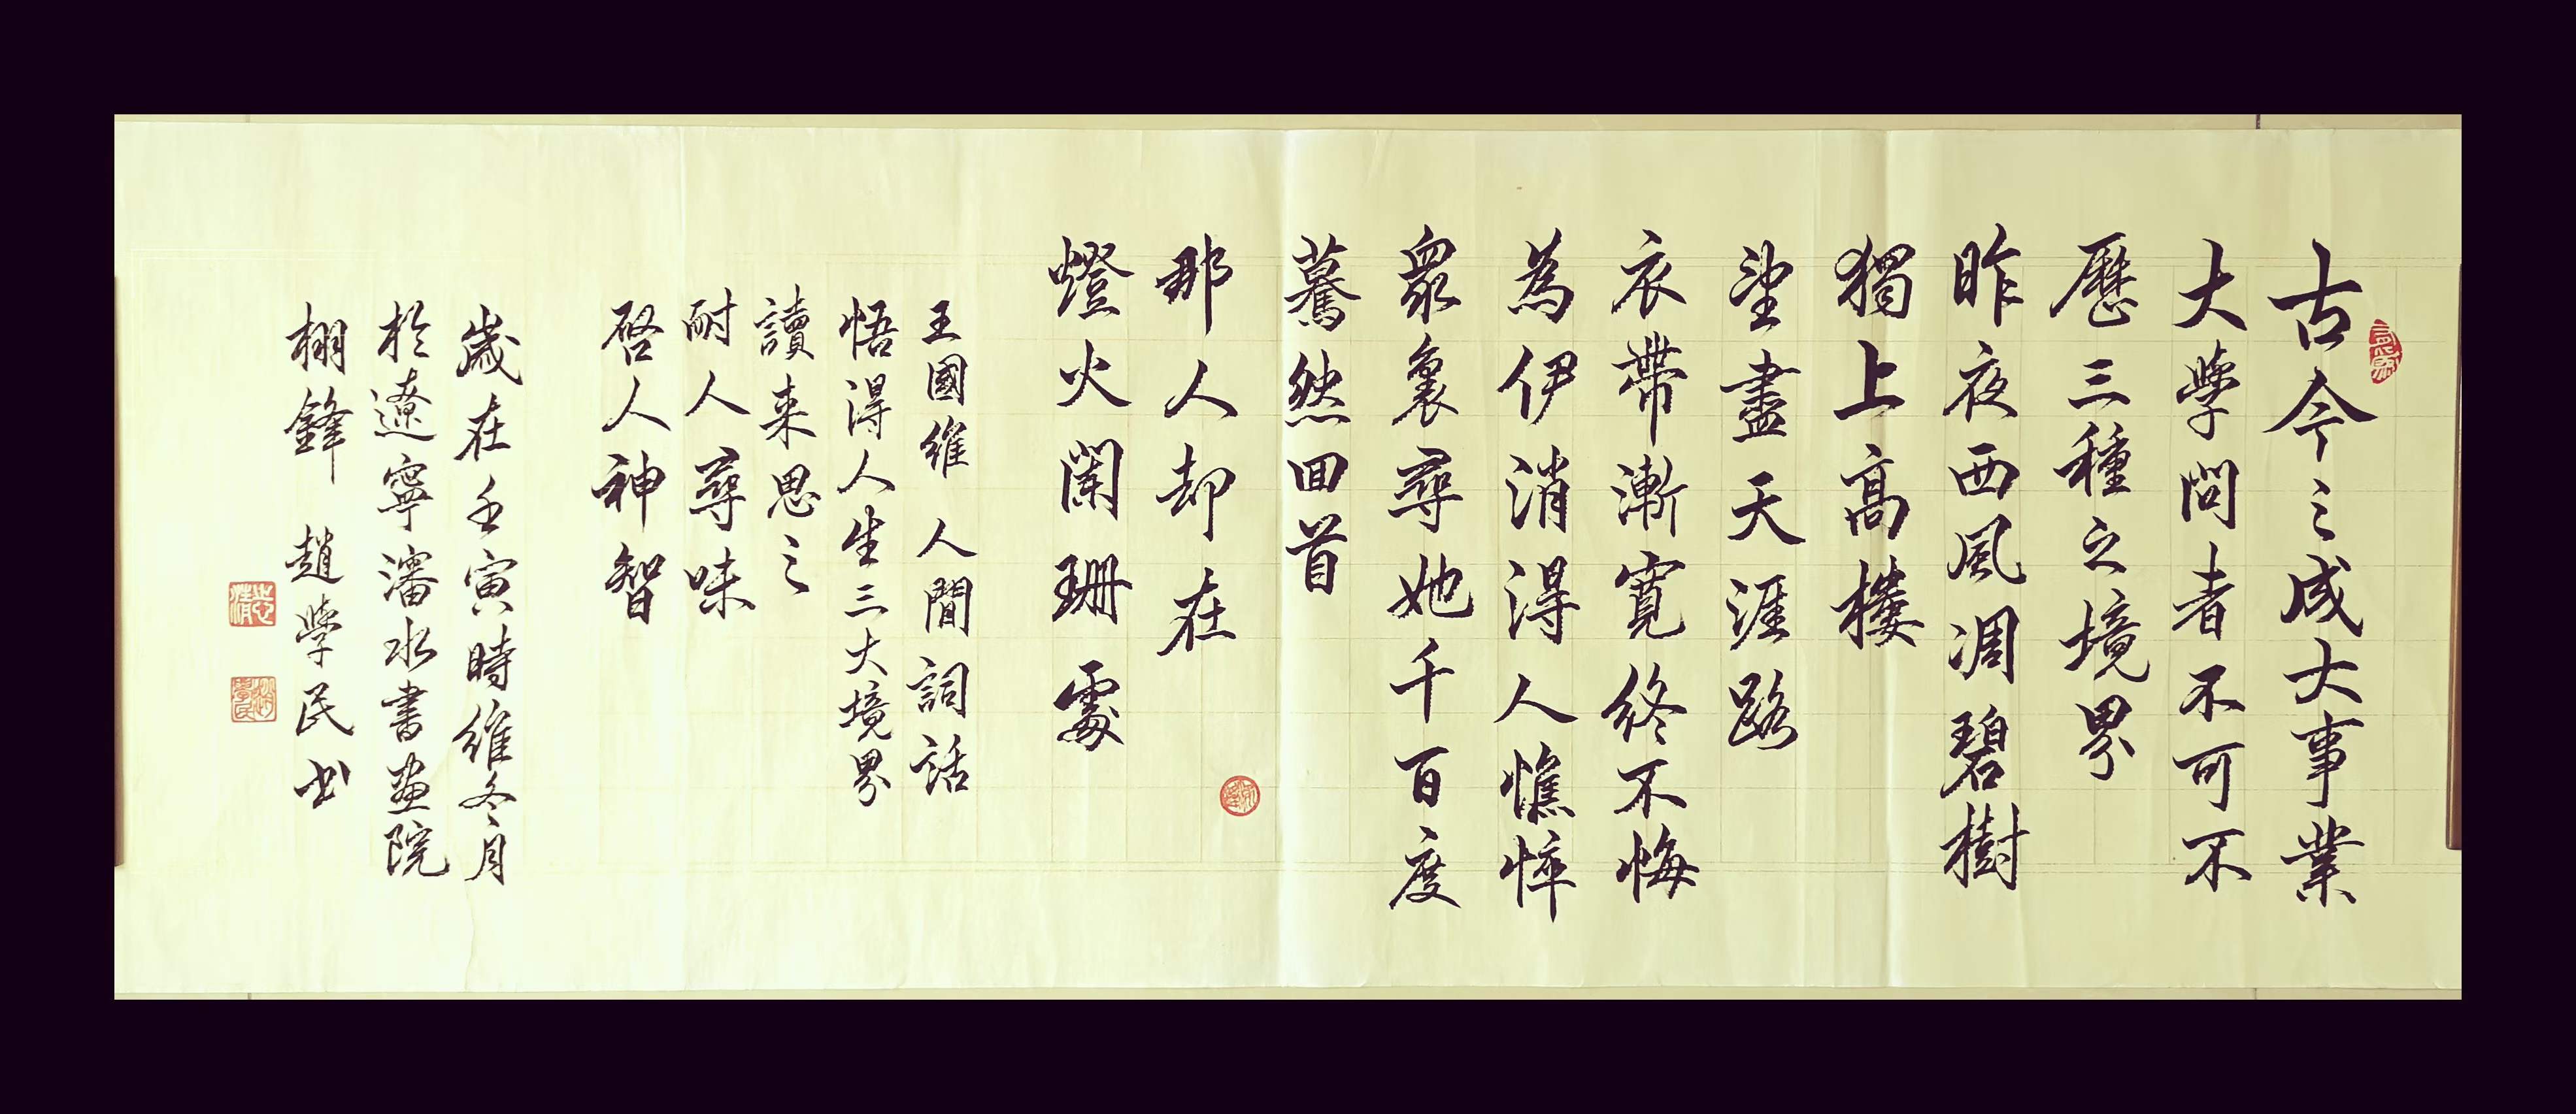 古今之成大事業
大學問者不可不
歷三種之境界
昨夜西風凋碧樹
獨上高樓
望盡天涯路
衣帶漸寬終不悔
為伊消得人憔悴
眾裏尋她千百度
驀然回首
那人却在
燈火闌珊處
王國維 人間詞話
悟得人生三大境界
讀来思之
耐人尋味
啓人神智
歲在壬寅時維冬月
於遼寧瀋水書畫院
棚鋒 趙學民书
趙學民